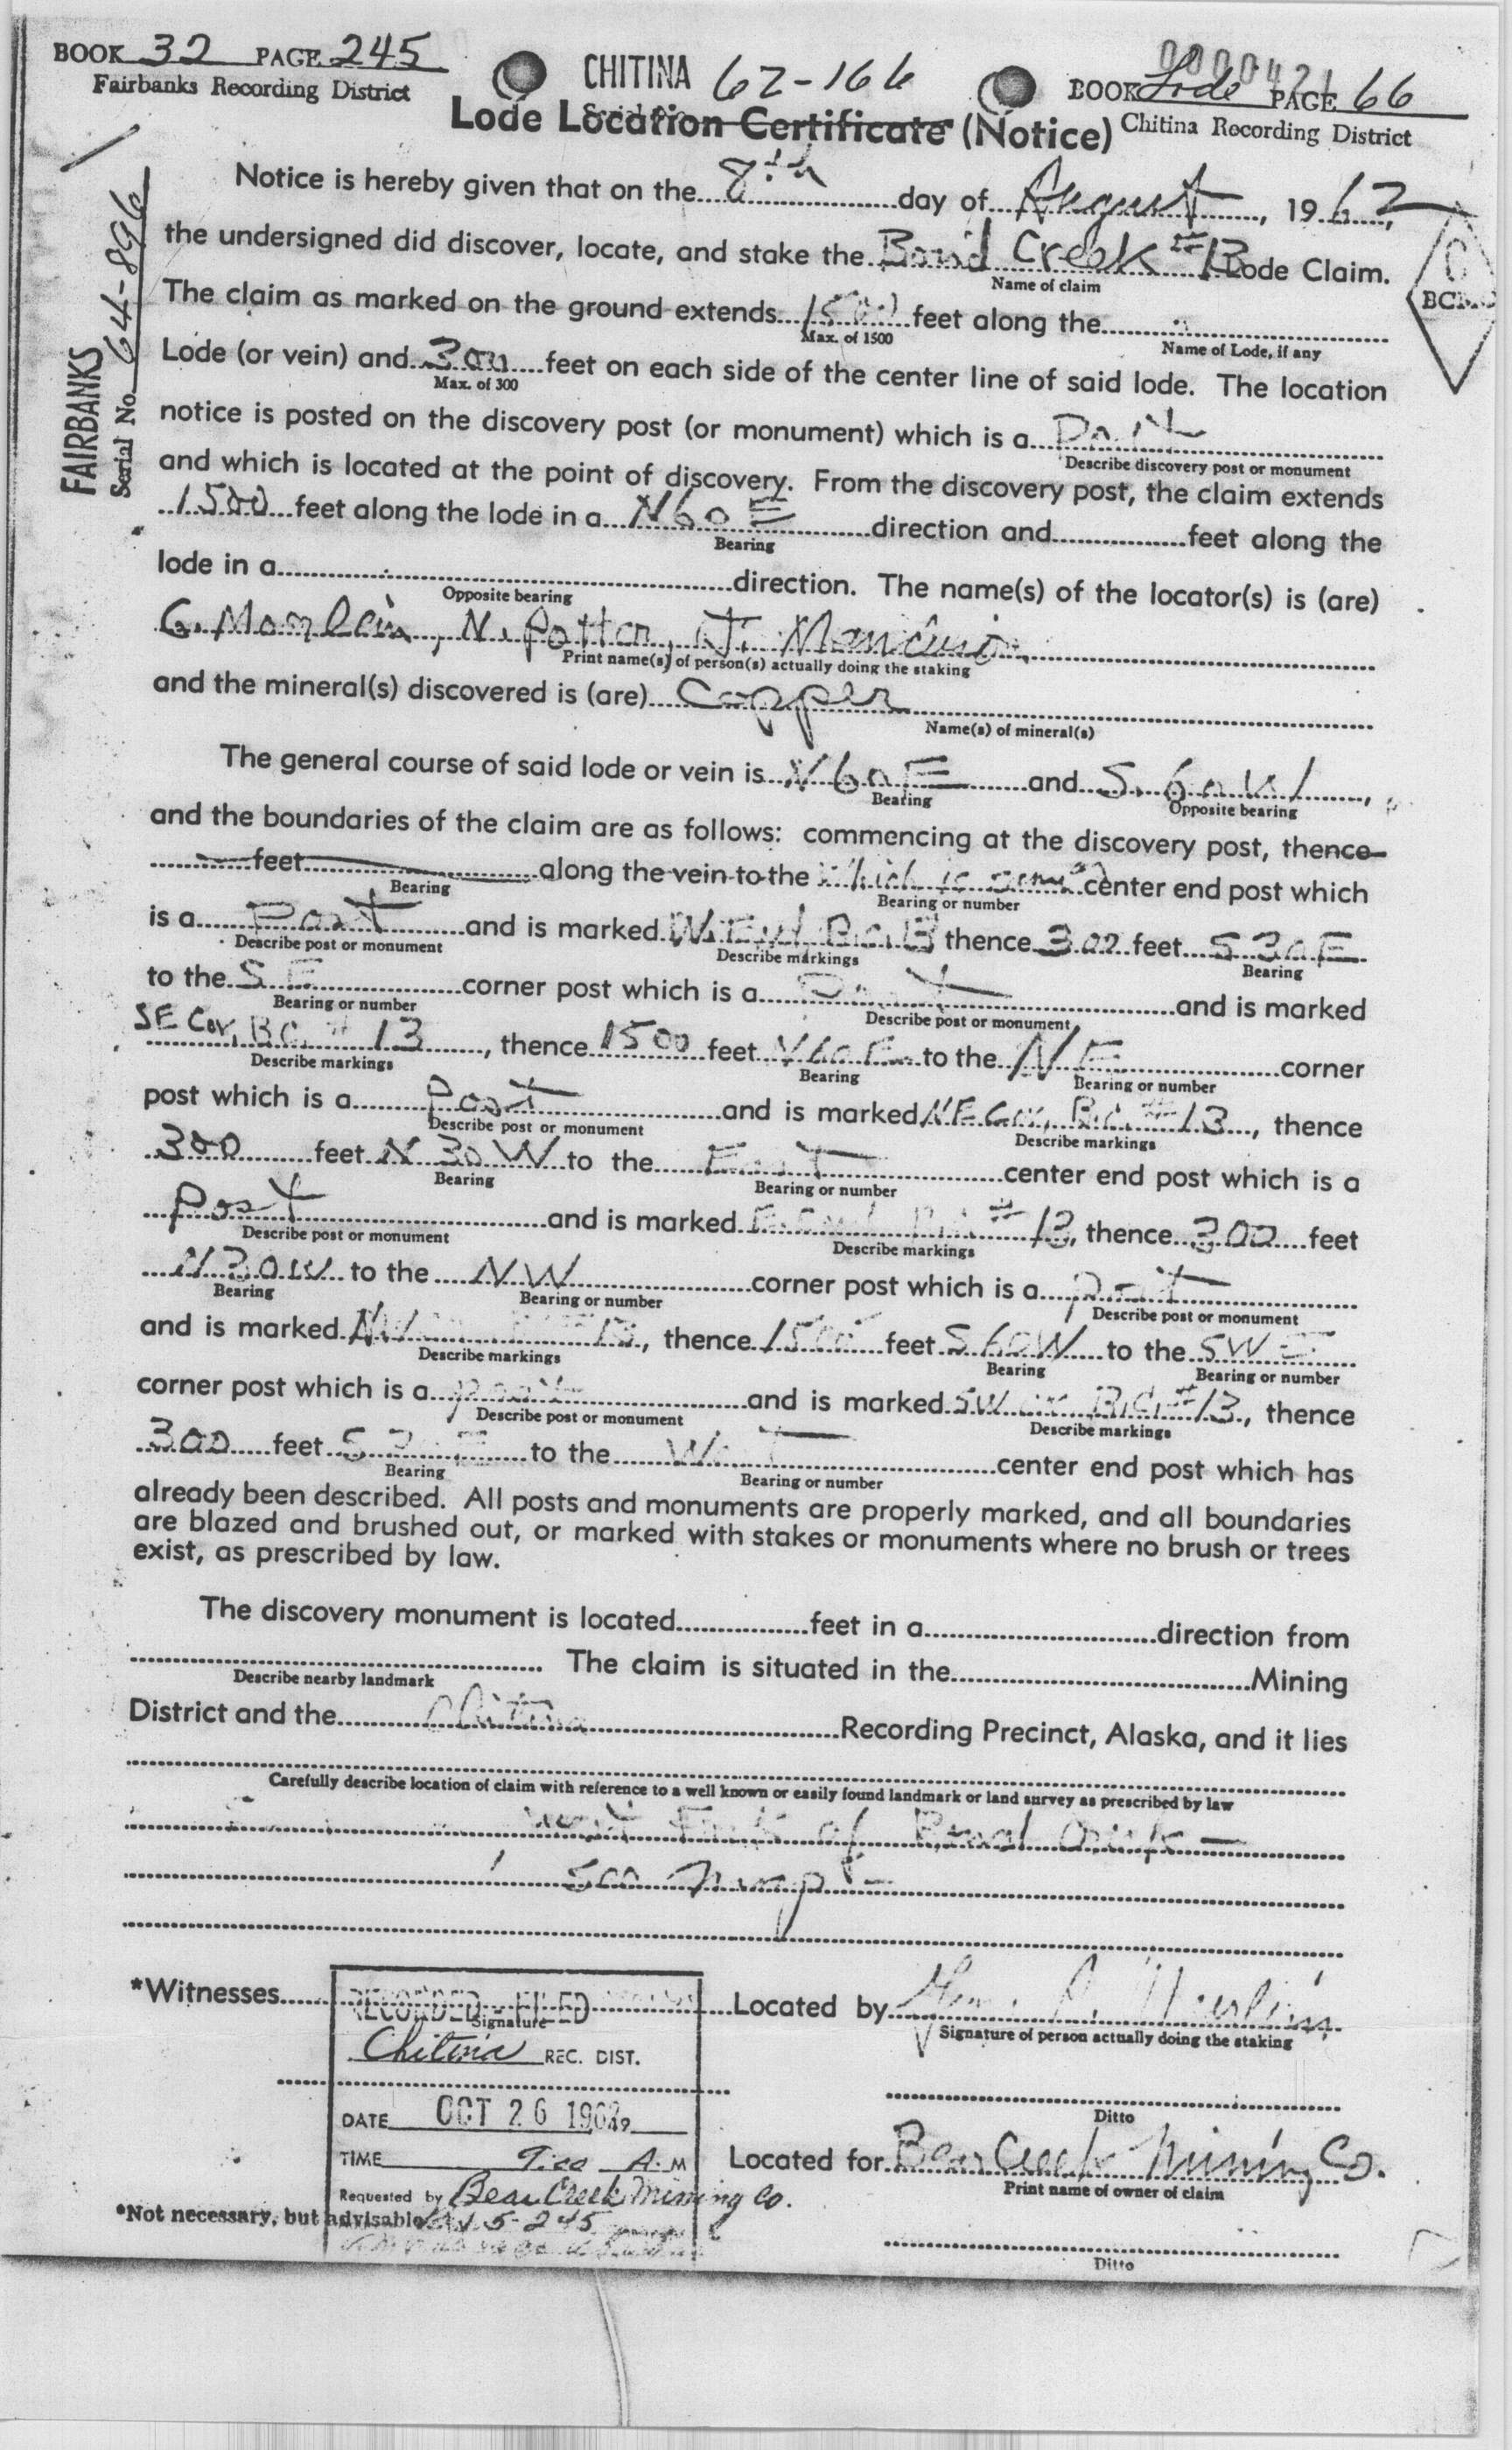 BOOK 32 PAGE 245
Fairbanks Recording District
CHITINA 62-166
Serial No.
0000421
BOOK Lode PAGE 66
Chitina Recording District
Lode Location Certificate (Notice)
FAIRBANKS
Serial No. 64-896
BCMC
Notice is hereby given that on the 8th day of August, 1962,
the undersigned did discover, locate, and stake the Bond Creek #13 Lode Claim.
Name of claim
The claim as marked on the ground extends 1500 feet along the
Max. of 1500 Name of Lode, if any
Lode (or vein) and 300 feet on each side of the center line of said lode. The location
Max. of 300
notice is posted on the discovery post (or monument) which is a Post
Describe discovery post or monument
and which is located at the point of discovery. From the discovery post, the claim extends
1500 feet along the lode in a N60E direction and feet along the
Bearing
lode in a direction. The name(s) of the locator(s) is (are)
Opposite bearing
G. , N. Potter, J. Mancuso
Print name(s) of person(s) actually doing the staking
and the mineral(s) discovered is (are) Copper
Name(s) of mineral(s)
The general course of said lode or vein is N60E and S. 60W,
Bearing Opposite bearing
and the boundaries of the claim are as follows: commencing at the discovery post, thence
feet along the vein to the which is center end post which
Bearing Bearing or number
is a Post and is marked W. End, B.C. 13 thence 300 feet S30E
Describe post or monument Describe markings Bearing
to the S.E. corner post which is a Post and is marked
Bearing or number Describe post or monument
SE Cor, B.C. # 13, thence 1500 feet N60E to the NE corner
Describe markings Bearing Bearing or number
post which is a Post and is marked NE Cor, B.C. #13, thence
Describe post or monument Describe markings
300 feet N 30 W to the East center end post which is a
Bearing Bearing or number
Post and is marked E. End B.C. #13, thence 300 feet
Describe post or monument Describe markings
N30W to the NW corner post which is a Post
Bearing Bearing or number Describe post or monument
and is marked NW 13, thence 1500 feet S60W to the SW
Describe markings Bearing Bearing or number
corner post which is a post and is marked SW Cor B.C. #13, thence
Describe post or monument Describe markings
300 feet S30E to the West center end post which has
Bearing Bearing or number
already been described. All posts and monuments are properly marked, and all boundaries
are blazed and brushed out, or marked with stakes or monuments where no brush or trees
exist, as prescribed by law.
The discovery monument is located feet in a direction from
The claim is situated in the Mining
Describe nearby landmark
District and the Chitina Recording Precinct, Alaska, and it lies
Carefully describe location of claim with reference to a well known or easily found landmark or land survey as prescribed by law
West Fork of Bond Creek —
See map —
*Witnesses Located by
Signature Signature of person actually doing the staking
RECORDED - FILED
Chitina REC. DIST.
DATE OCT 26 1962
Ditto
TIME 9:00 A. M
Located for Bear Creek Mining Co.
Print name of owner of claim
Requested by Bear Creek Mining Co.
*Not necessary, but advisable
Ditto